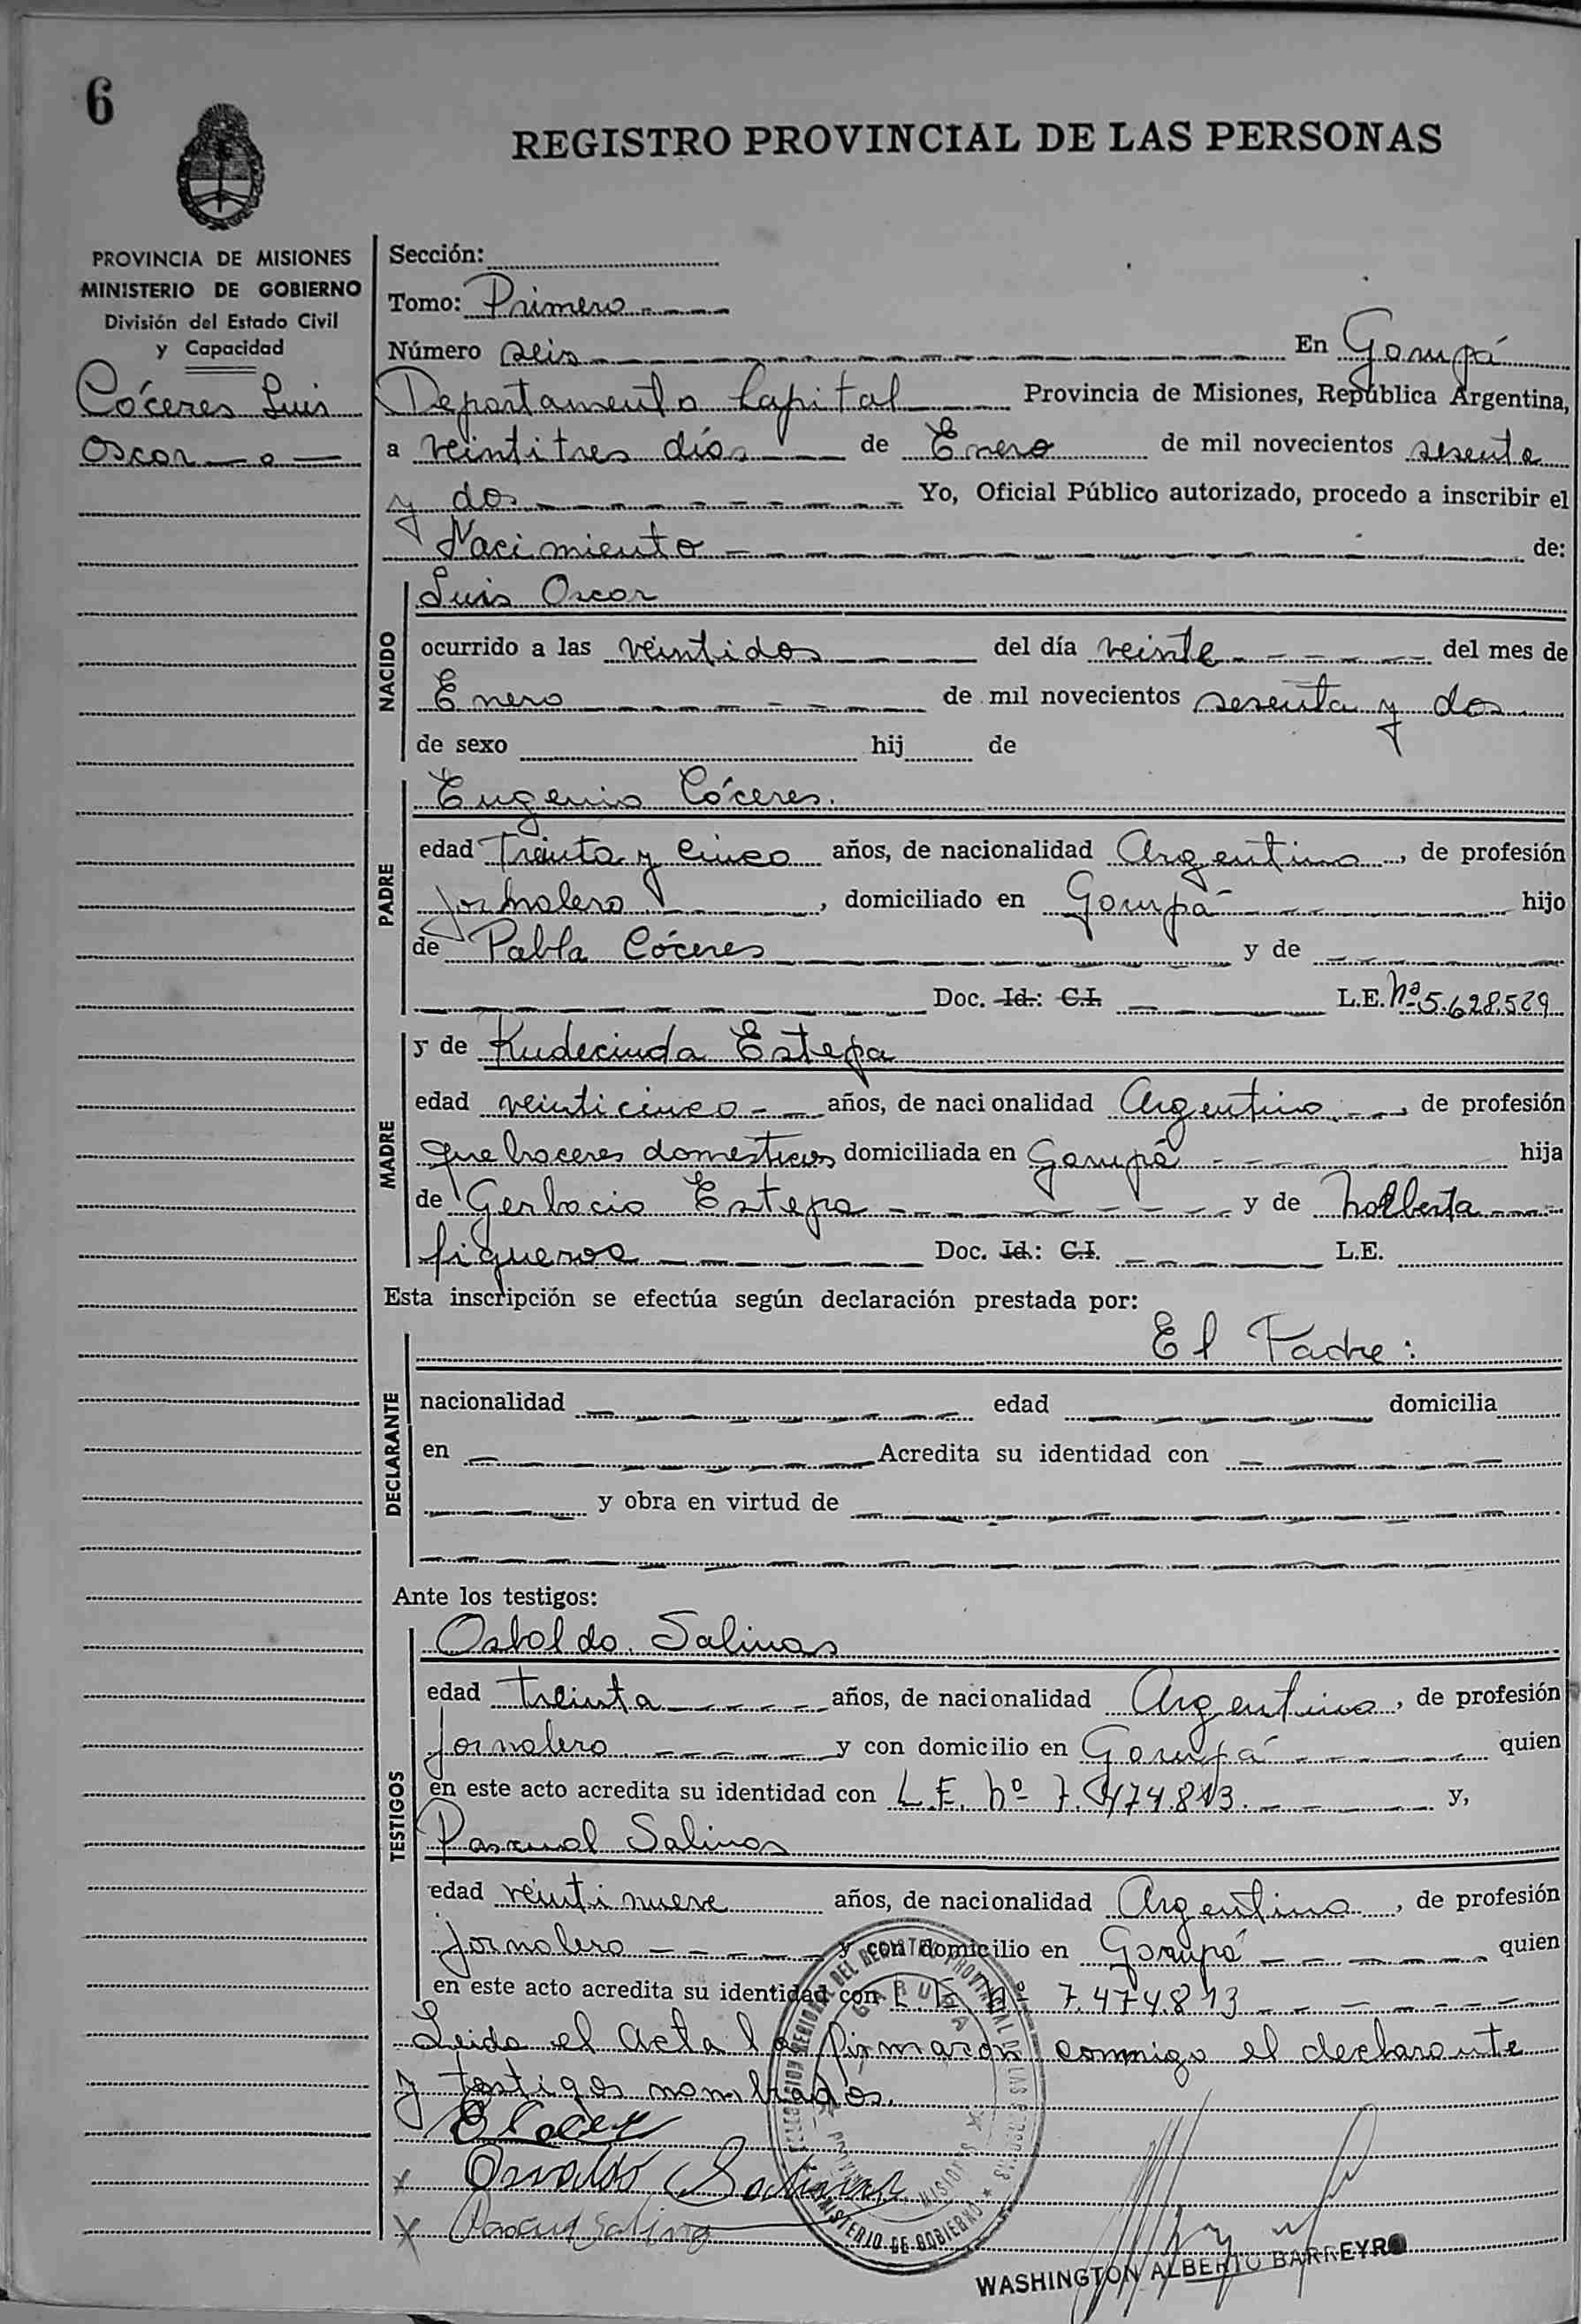 6
REGISTRO PROVINCIAL DE LAS PERSONAS
PROVINCIA DE MISIONES
MINISTERIO DE GOBIERNO
División del Estado Civil
y Capacidad
Cóceres Luis
Oscar
Sección:
Tomo: Primero
Número seis En Garupá
Departamento Capital Provincia de Misiones, República Argentina,
a veintitres días de Enero de mil novecientos sesenta
y dos Yo, Oficial Público autorizado, procedo a inscribir el
Nacimiento de:
NACIDO
Luis Oscar
ocurrido a las veintidos del día veinte del mes de
Enero de mil novecientos sesenta y dos
de sexo hij de
PADRE
Eugenio Cóceres.
edad Treinta y Cinco años, de nacionalidad Argentino, de profesión
Jornalero, domiciliado en Garupá hijo
de Pabla Cóceres y de
Doc. Id.: C.I. L.E. Nº 5.628.529
MADRE
y de Rudecinda Estepa
edad veinticinco años, de nacionalidad Argentina, de profesión
que haceres domesticos domiciliada en Garupá hija
de Gerbacio Estepa y de Nolberta
figueroa Doc. Id.: C.I. L.E.
Esta inscripción se efectúa según declaración prestada por:
El Padre:
DECLARANTE
nacionalidad edad domicilia
en Acredita su identidad con
y obra en virtud de
Ante los testigos:
TESTIGOS
Osvaldo Salinas
edad treinta años, de nacionalidad Argentino, de profesión
Jornalero y con domicilio en Garupá quien
en este acto acredita su identidad con L.E. Nº 7.474.813. y,
Pascual Salinas
edad veintinueve años, de nacionalidad Argentino, de profesión
Jornalero y con domicilio en Garupá quien
en este acto acredita su identidad con L.E. Nº 7.474.813
Leida el Acta la firmaron conmigo el declarante
y testigos nombrados.
Osvaldo Salinas
Pascual Salina
GARUPA
MISIONES
MINISTERIO DE GOBIERNO
WASHINGTON ALBERTO BARREYRO